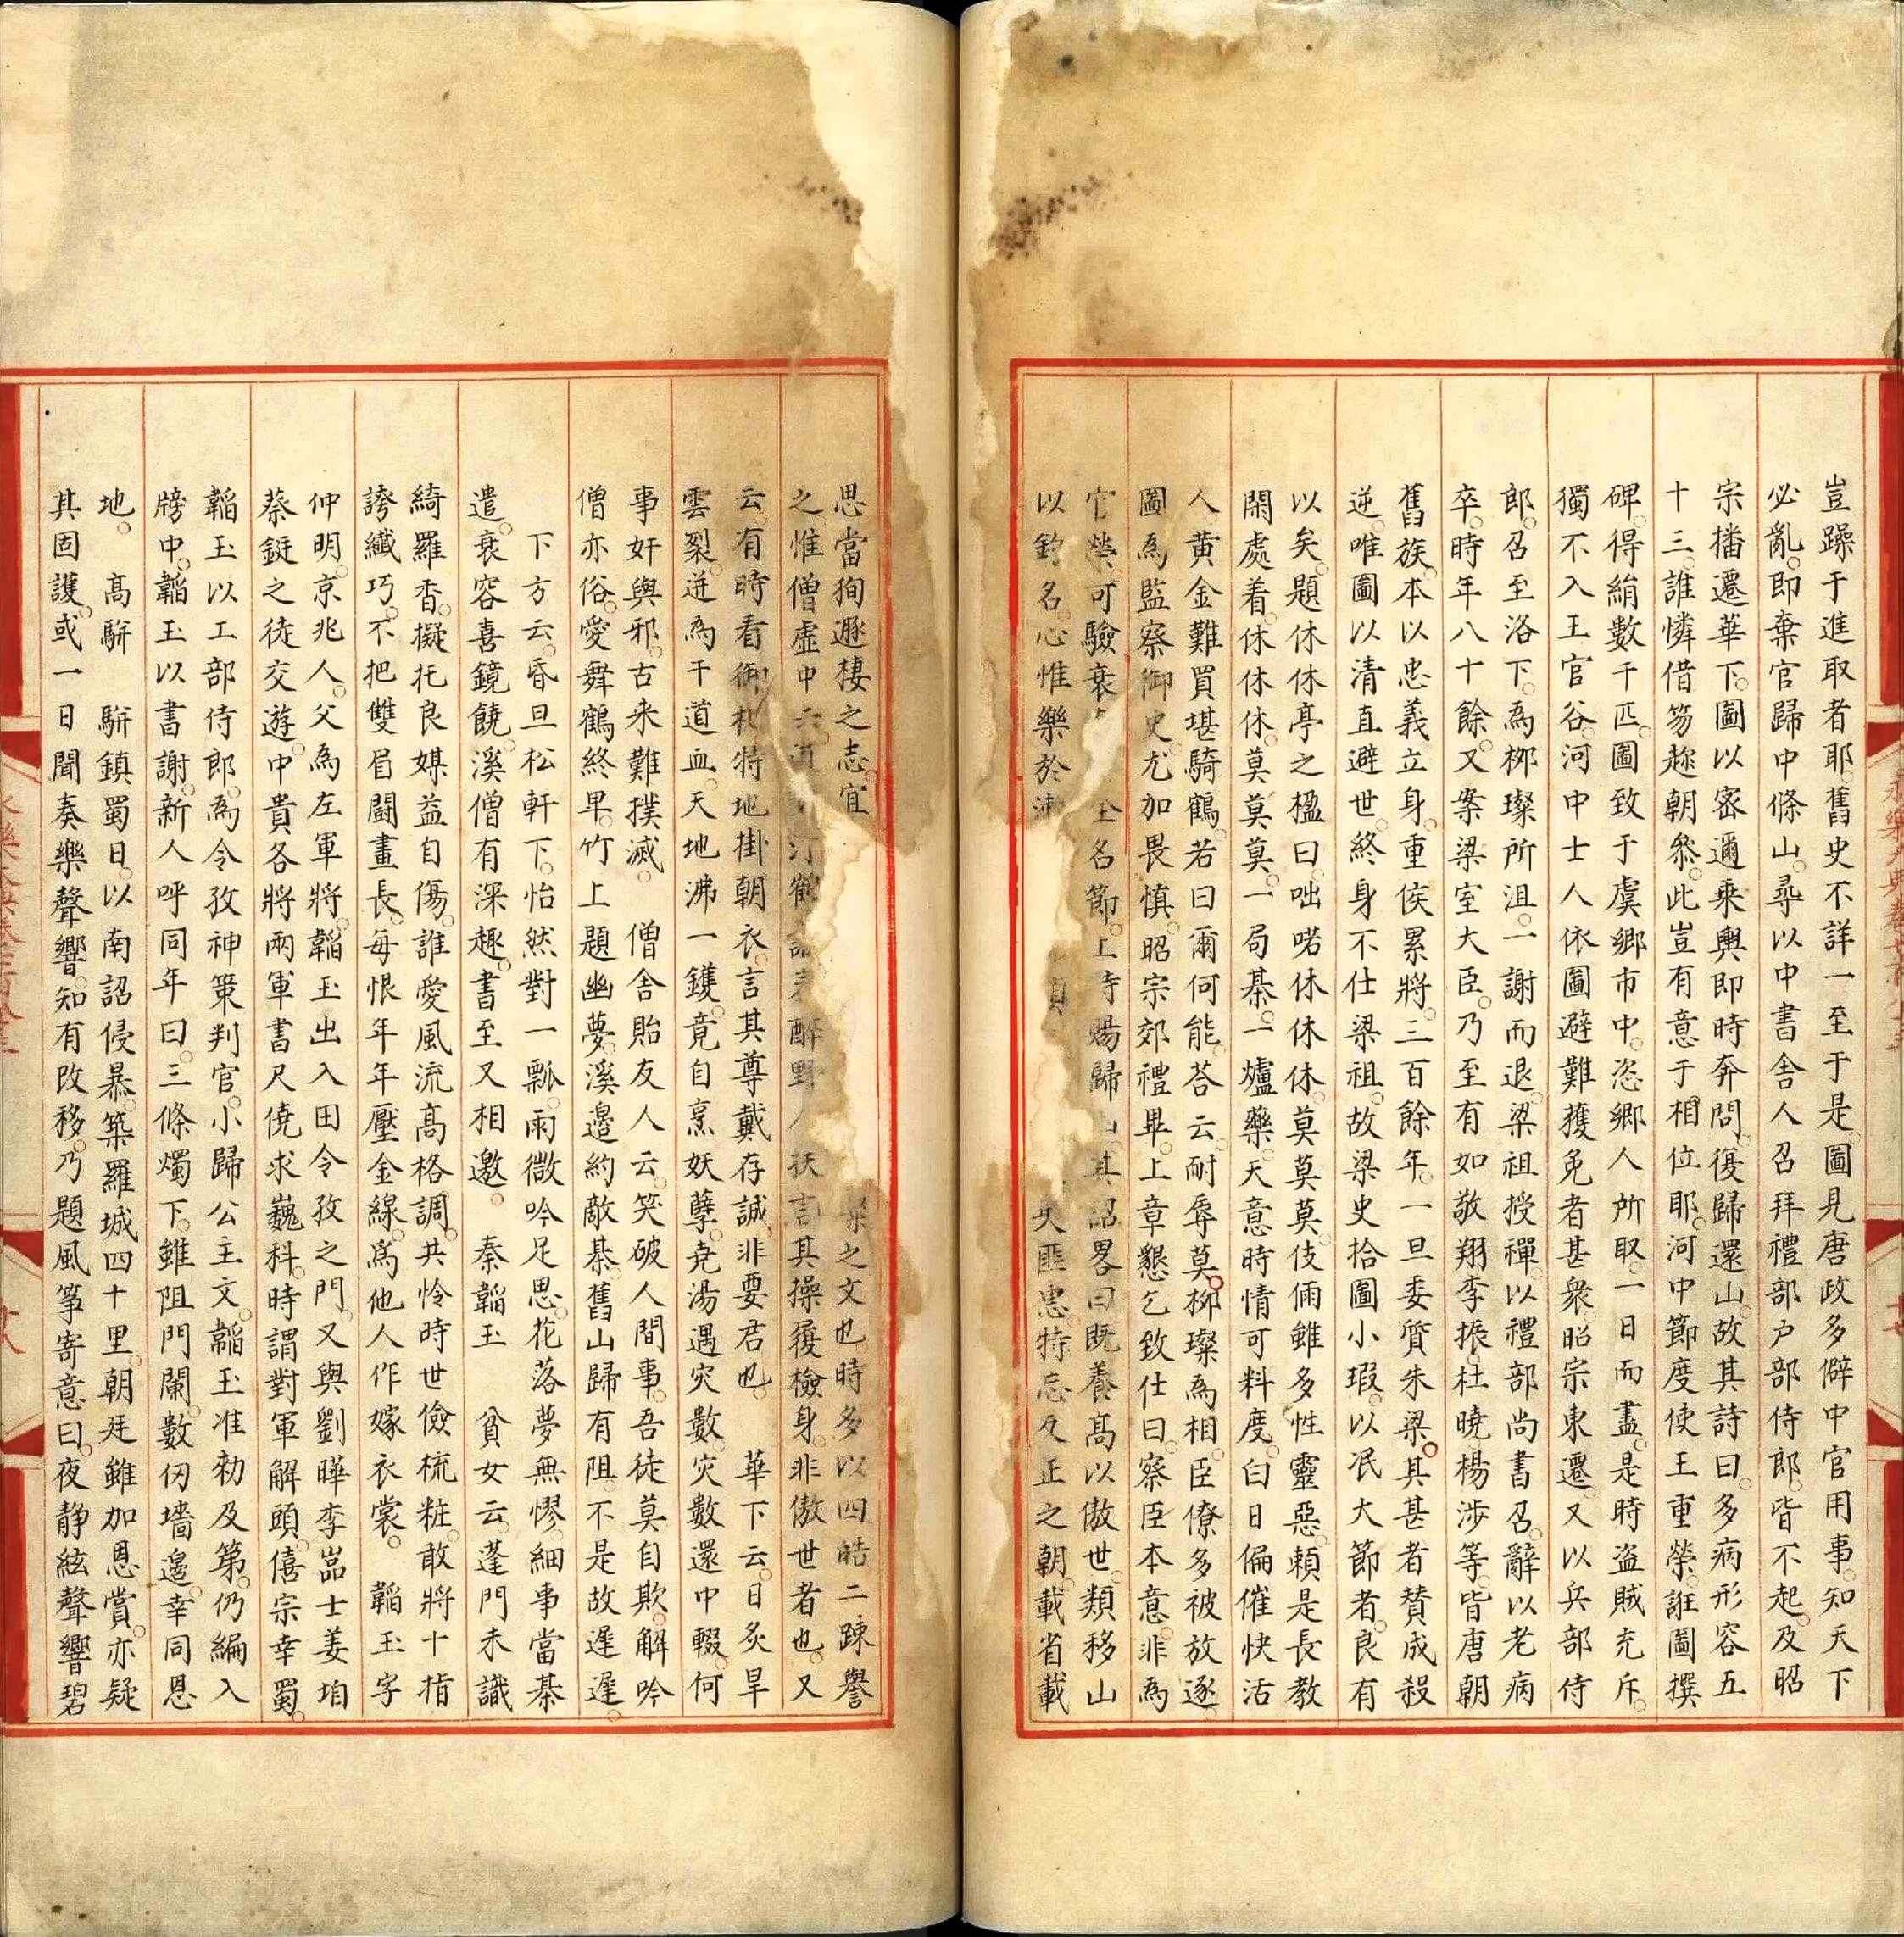 豈躁于進取者耶舊史不詳一至于是圖見唐政多僻中官用事知天下
必亂即棄官歸中條山尋以中書舍人召拜禮部户部侍郎皆不起及昭
宗播遷華下圖以密邇乘輿即時奔問復歸還山故其詩曰多病形容五
十三誰憐借笏趂朝叅此豈有意于相位耶河中節度使王重榮誑圖撰
碑得絹數千匹圖致于虞鄉市中恣鄉人所取一日而盡是時盗賊充斥
獨不入王官谷河中士人依圖避難獲免者甚衆昭宗東遷又以兵部侍
郎召至洛下為栁璨所沮一謝而退梁祖授禪以禮部尚書召辭以老病
卒時年八十餘又案梁室大臣乃至有如敬翔李振杜曉楊涉等皆唐朝
舊族本以忠義立身重侯累將三百餘年一旦委質朱梁其甚者賛成殺
逆唯圖以清直避世終身不仕梁祖故梁史拾圖小瑕以泯大節者良有
以矣題休休亭之楹曰咄喏休休休莫莫莫伎倆雖多性靈惡頼是長教
閑處着休休休莫莫莫一局棊一爐藥天意時情可料度白日偏催快活
人黄金難買堪騎鶴若曰爾何能荅云耐辱莫栁璨為相臣僚多被放逐
圖為監察御史尤加畏慎昭宗郊禮畢上章懇乞致仕曰察臣本意非為
官榮可驗衰全名節上時賜歸山其詔畧曰既養髙以傲世類移山
以釣名心惟樂於漱夷匪惠特忘反正之朝載省載
思當狥遯棲之志宜樂之文也時多以四皓二踈譽
之惟僧虚中云道汀鶴醉野人扶言其操履檢身非傲世者也又
云有時看御札特地掛朝衣言其尊戴存誠非要君也　華下云日炙旱
雲裂迸為千道血天地沸一鑊竟自烹妖孽尭湯遇灾數灾數還中輟何
事奸與邪古来難撲滅　僧舎貽友人云笑破人間事吾徒莫自欺解吟
僧亦俗愛舞鶴終早竹上題幽夢溪邉約敵棊舊山歸有阻不是故遲遲
下方云昏旦松軒下怡然對一瓢雨微吟足思花落夢無憀細事當棊
遣衰容喜鏡饒溪僧有深趣書至又相邀　秦韜玉　貧女云蓬門未識
綺羅香擬托良媒益自傷誰愛風流髙格調共怜時世儉梳粧敢將十指
誇纖巧不把雙眉鬪畫長每恨年年壓金線為他人作嫁衣裳　韜玉字
仲明京兆人父為左軍將韜玉出入田令孜之門又與劉曄李嵓士姜垍
蔡鋋之徒交遊中貴各將兩軍書尺僥求巍科時謂對軍解頭僖宗幸蜀
韜玉以工部侍郎為令孜神䇿判官小歸公主文韜玉准勑及苐仍編入
牓中韜玉以書謝新人呼同年曰三條燭下雖阻門闌數仞墻邉幸同恩
地　髙駢　駢鎮蜀日以南詔侵暴築羅城四十里朝廷雖加恩賞亦疑
其固護或一日聞奏樂聲響知有改移乃題風筝寄意曰夜静絃聲響碧